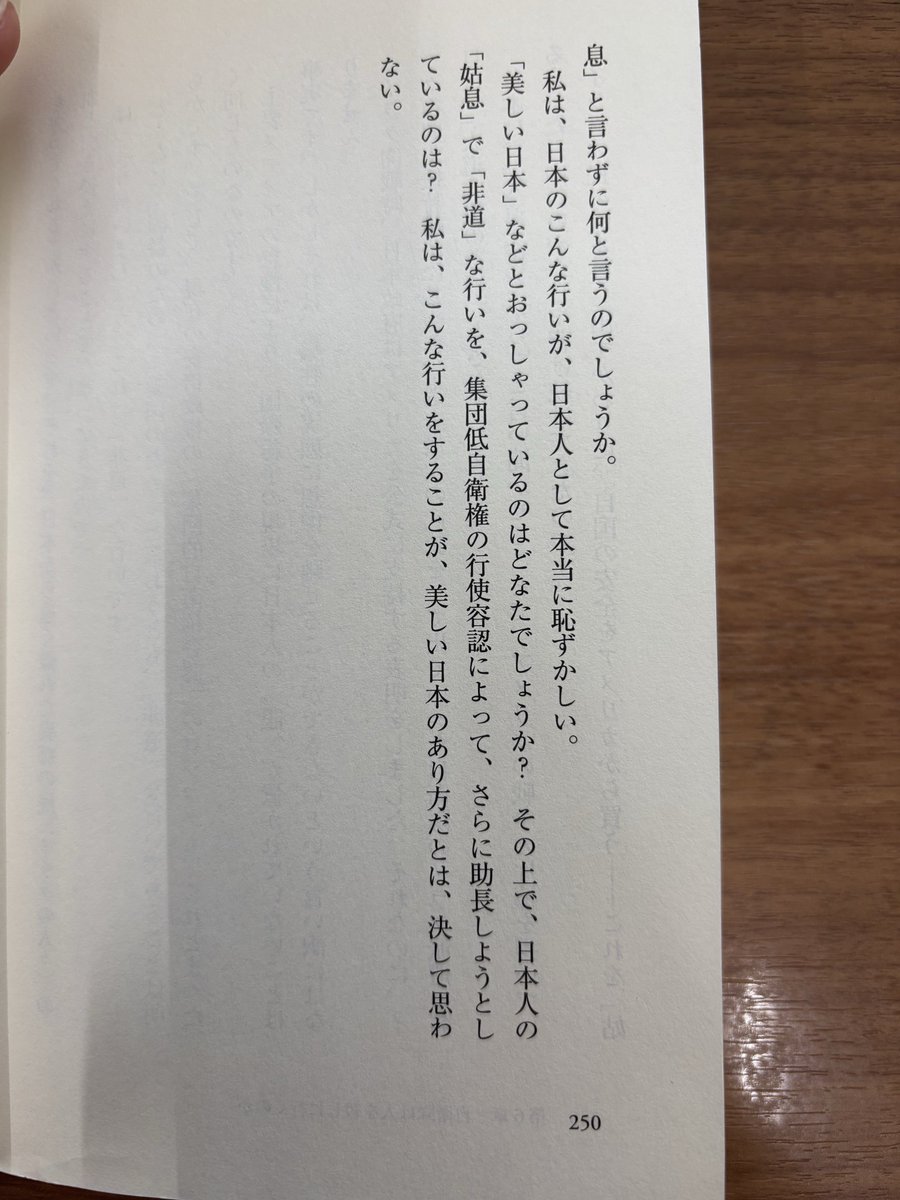 息」と言わずに何と言うのでしょうか。
私は、日本のこんな行いが、日本人として本当に恥ずかしい。
「美しい日本」などとおっしゃっているのはどなたでしょうか? その上で、日本人の
「姑息」で「非道」な行いを、集団低自衛権の行使容認によって、さらに助長しようとし
ているのは? 私は、こんな行いをすることが、美しい日本のあり方だとは、決して思わ
ない。
250